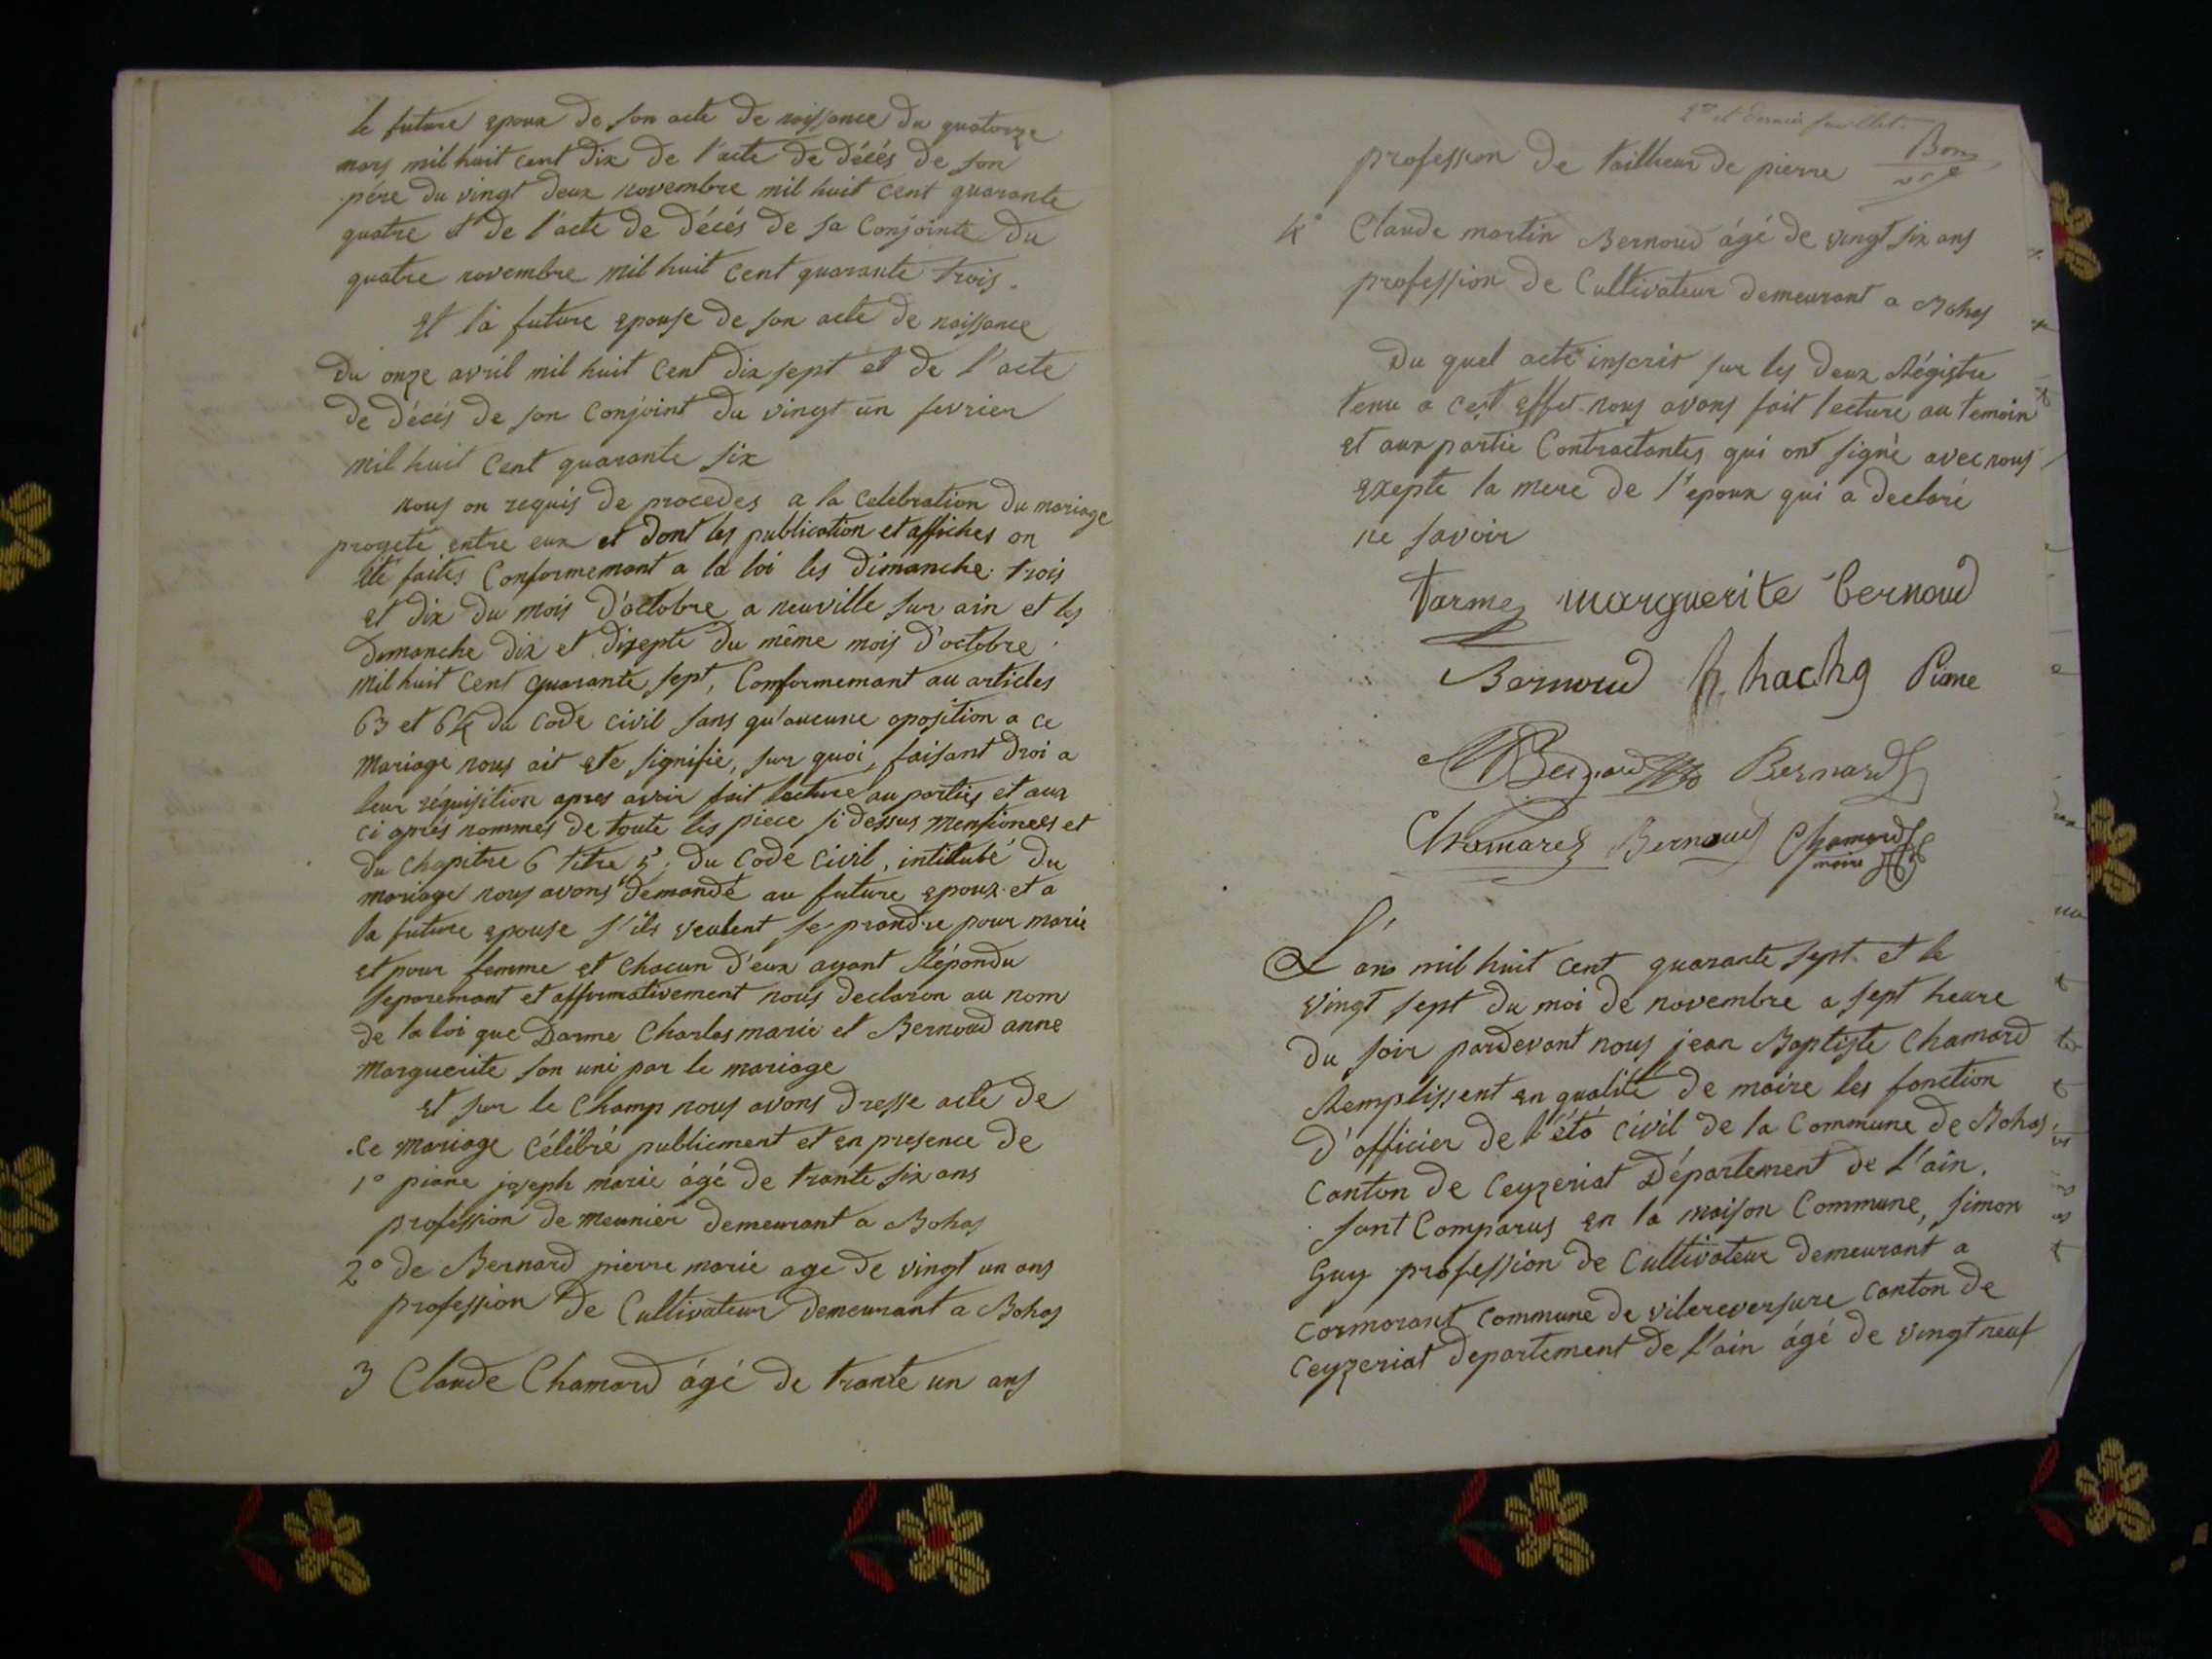 le future epoux de son acte de naissance du quatorze
mars mil huit cent dix de l'acte de décés de son
pére du vingt deux novembre mil huit cent quarante
quatre et de l'acte de décés de sa Conjointe du
quatre novembre mil huit cent quarante trois.
Et la future epouse de son acte de naissance
du onze avril mil huit cent dix sept et de l'acte
de décés de son Conjoint du vingt un fevrier
mil huit Cent quarante six
nous on requis de procedes a la celebration du mariage
progete entre eux et dont les publication et affiches on
été faites Conformemant a la loi les dimanche trois
et dix du mois d'octobre a neuville sur ain et les
dimanche dix et disepte du même mois d'octobre
mil huit Cent quarante sept, Comformemant au articles
63 et 64 du Code Civil sans qu'aucune oposition a ce
mariage nous ait ete signifie, sur quoi, faisant droi a
leur réquisition apres avoir fait lecture au parties et aux
ci aprés nommés de toute les piece si dessus mensionees et
du chapitre 6 titre 5. du Code Civil, intitubé du
mariage nous avons demandé au future epoux et a
la future epouse s'ils veulent se prandre pour marie
et pour femme et chacun d'eux ayant Répondu
separemant et affirmativement nous declaron au nom
de la loi que Darme Charles marie et Bernoud anne
Marguerite son uni par le mariage
et sur le champ nous avons dresse acte de
ce mariage célébré publicment et en presence de
1° piane joseph marie ágé de trante six ans
profession de meunier demeurant a Bohas
2° de Bernard pierre marie age de vingt un ans
profession de Cultivateur demeurant a Bohas
3 Claude Chamard ágé de trante un ans
2me et dernier feuillet.
profession de tailheur de pierre
4° Claude martin Bernoud ágé de vingt six ans
profession de Cultivateur demeurant a Bohas
Du quel acte inscrit sur les deux Régistre
tenu a cest effet nous avons fait lecture au temoin
et aux partie Contractantes qui ont signé avec nous
exepte la mere de l'epoux qui a declaré
ne savoir
Darme marguerite bernoud
Bernoud Piane
Bernard Bernard
Chamard Bernoud Chamard
maire
L'an mil huit cent quarante sept et le
vingt sept du moi de novembre a sept heure
du soir pardevant nous jean Baptiste Chamard
Remplissent en qualité de maire les fonction
d'officier de l'été civil de la Commune de Bohas
Canton de Ceyzeriat Département de l'ain.
sont Comparus en la maison Commune, simon
Guy profession de Cultivateur demeurant a
Cormorant Commune de vilereversure Canton de
Ceyzeriat departement de l'ain ágé de vingt neuf